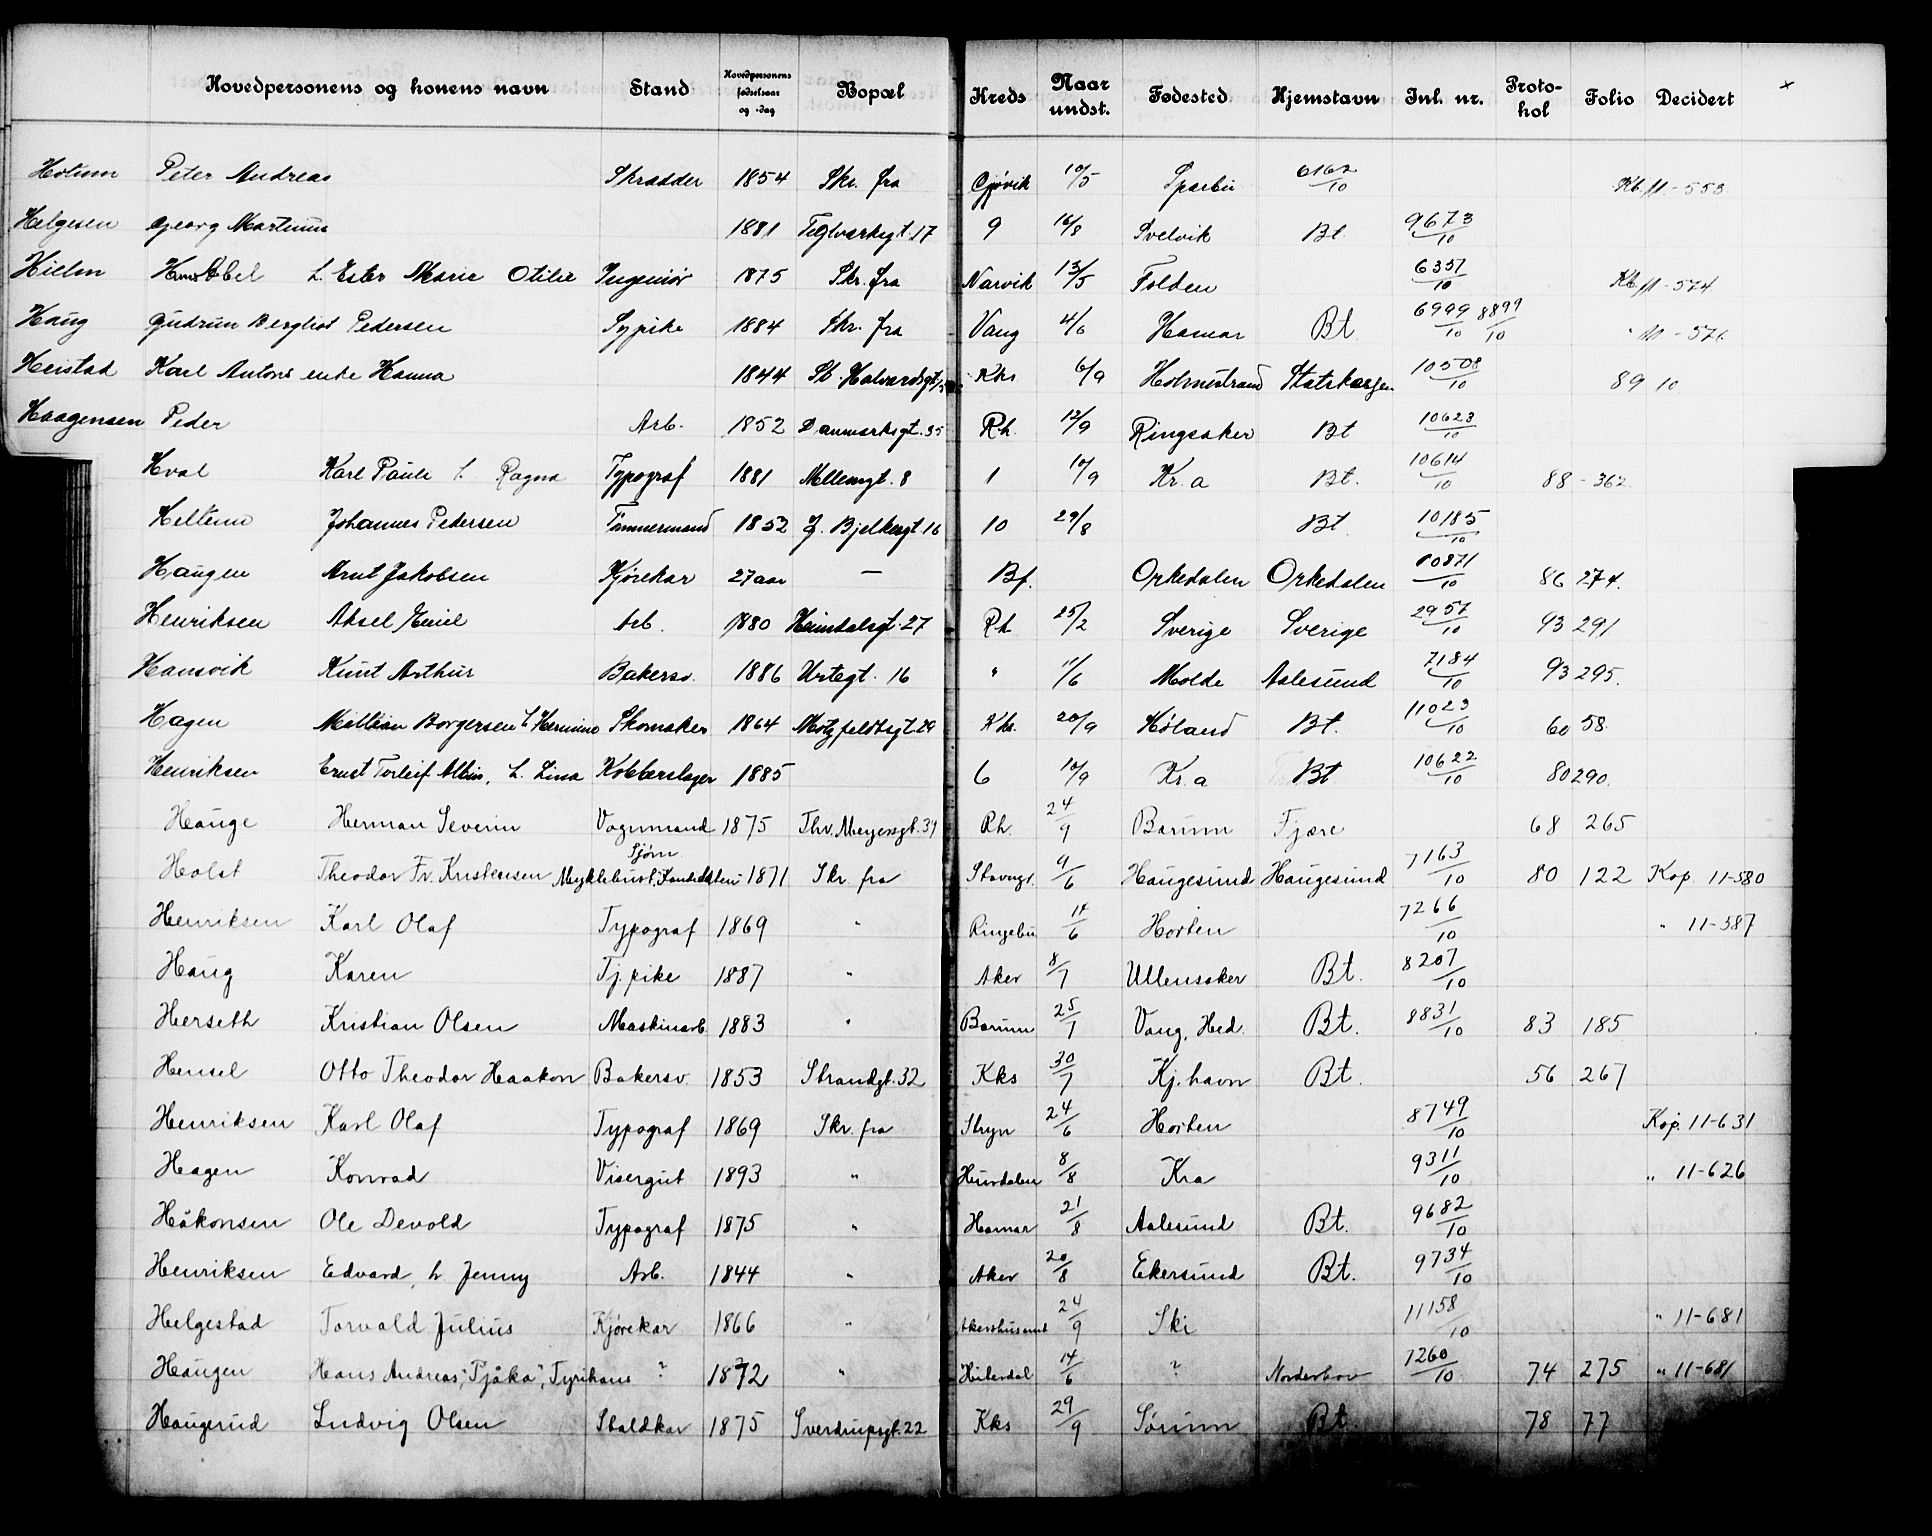 Hovedpersonens og konens navn Stand Hovedpersonens fødselsaar og -dag Bopæl Kreds Naar undst. Fødested Hjemstavn Inl. nr. Protokol Folio Decidert +
Holum Peter Andreas Skrædder 1854 Skr. fra Gjøvik 10/5 Sparbu 6162/10 Kb. 11-553
Helgesen Georg Martinus 1881 Teglverksgt. 17 9 16/8 Svelvik Bt. 9673/10
Hielm Abel h. Ester Marie Otilie Ingeniør 1875 Skr. fra Narvik 13/5 Folden 6357/10 Kb. 11-574
Haug Gudrun Bergliot Pedersen Sypike 1884 Skr. fra Vang 4/6 Hamar Bt. 6999/10 8899/10 " 11-576
Heistad Karl Antons enke Hanna 1844 St. Halvardsgt. Kks 6/9 Holmestrand Statskassen 10508/10 89 10
Haagensen Peder Arb. 1852 Danmarksgt. 35 Rh. 12/9 Ringsaker Bt 10623/10
Hval Karl Paule h. Ragna Typograf 1881 Møllerngt. 8 1 10/9 Kr.a Bt. 10614/10 88-362.
Hellem Johannes Pedersen Tømmermand 1852 J. Bjelkesgt. 16 10 29/8 Bt 10185/10
Haugen Arnt Jakobsen Kjørekar 27 aar — Bf. Orkedalen Orkedalen 10871/10 86 274.
Henriksen Aksel Emil Arb. 1880 Heimdalsgt. 27 Rh 25/2 Sverige Sverige 2957/10 93 291
Hansvik Knut Arthur Bakersv. 1886 Urtegt. 16 " 11/6 Molde Aalesund 7184/10 93 295.
Hagen Borgersen h. Hermine Skomaker 1864 Motzfeldtsgt. 29 Kks. 20/9 Høland Bt. 11023/10 60 58.
Henriksen Ernst Torleif Albin, h. Lina Kobberslager 1885 6 10/9 Kr.a Bt 10622/10 80 290.
Hauge Herman Severin Vognmand 1875 Thv. Meyersgt. 34 Rh. 24/9 Bærum Fjære 68 265
Holst Theodor Fr. Kristensen Myklebust, "Kandidaten" Sjøm. 1871 Skr. fra Stavngr. 9/6 Haugesund Haugesund 7163/10 80 122 Kop. 11-580
Henriksen Karl Olaf Typograf 1869 " Ringebu 14/6 Horten 7266/10 " 11-587
Haug Karen Tj. pike 1887 " Aker 8/7 Ullensaker Bt. 8207/10
Herseth Kristian Olsen Maskinarb. 1883 " Bærum 25/7 Vang, Hed. Bt. 8831/10 83 185
Hensel Otto Theodor Haakon Bakersv. 1853 Strandgt. 32 Kks 30/7 Kj.havn Bt. 56 267
Henriksen Karl Olaf Typograf 1869 Skr. fra Stryn 24/6 Horten 8749/10 Kop. 11-631
Hagen Konrad Visergut 1893 " Hurdalen 8/8 Kra 9311/10 " 11-626
Håkonsen Ole Devold Typograf 1875 " Hamar 21/8 Aalesund Bt. 9682/10
Henriksen Edvard, h. Jenny Arb. 1844 " Aker 20/8 Ekersund Bt. 9734/10
Helgestad Torvald Julius Kjørekar 1866 " Akershusamt 24/9 Ski 11158/10 " 11-681
Haugen Hans Andreas, "Pjåka", Tyrihans ? 1872 " Hiterdal 14/6 ? Norderhov 1260/10 74 275 " 11-681
Haugerud Ludvig Olsen Staldkar 1875 Sverdrupsgt. 22 Kks 29/9 Sørum Bt. 78 77